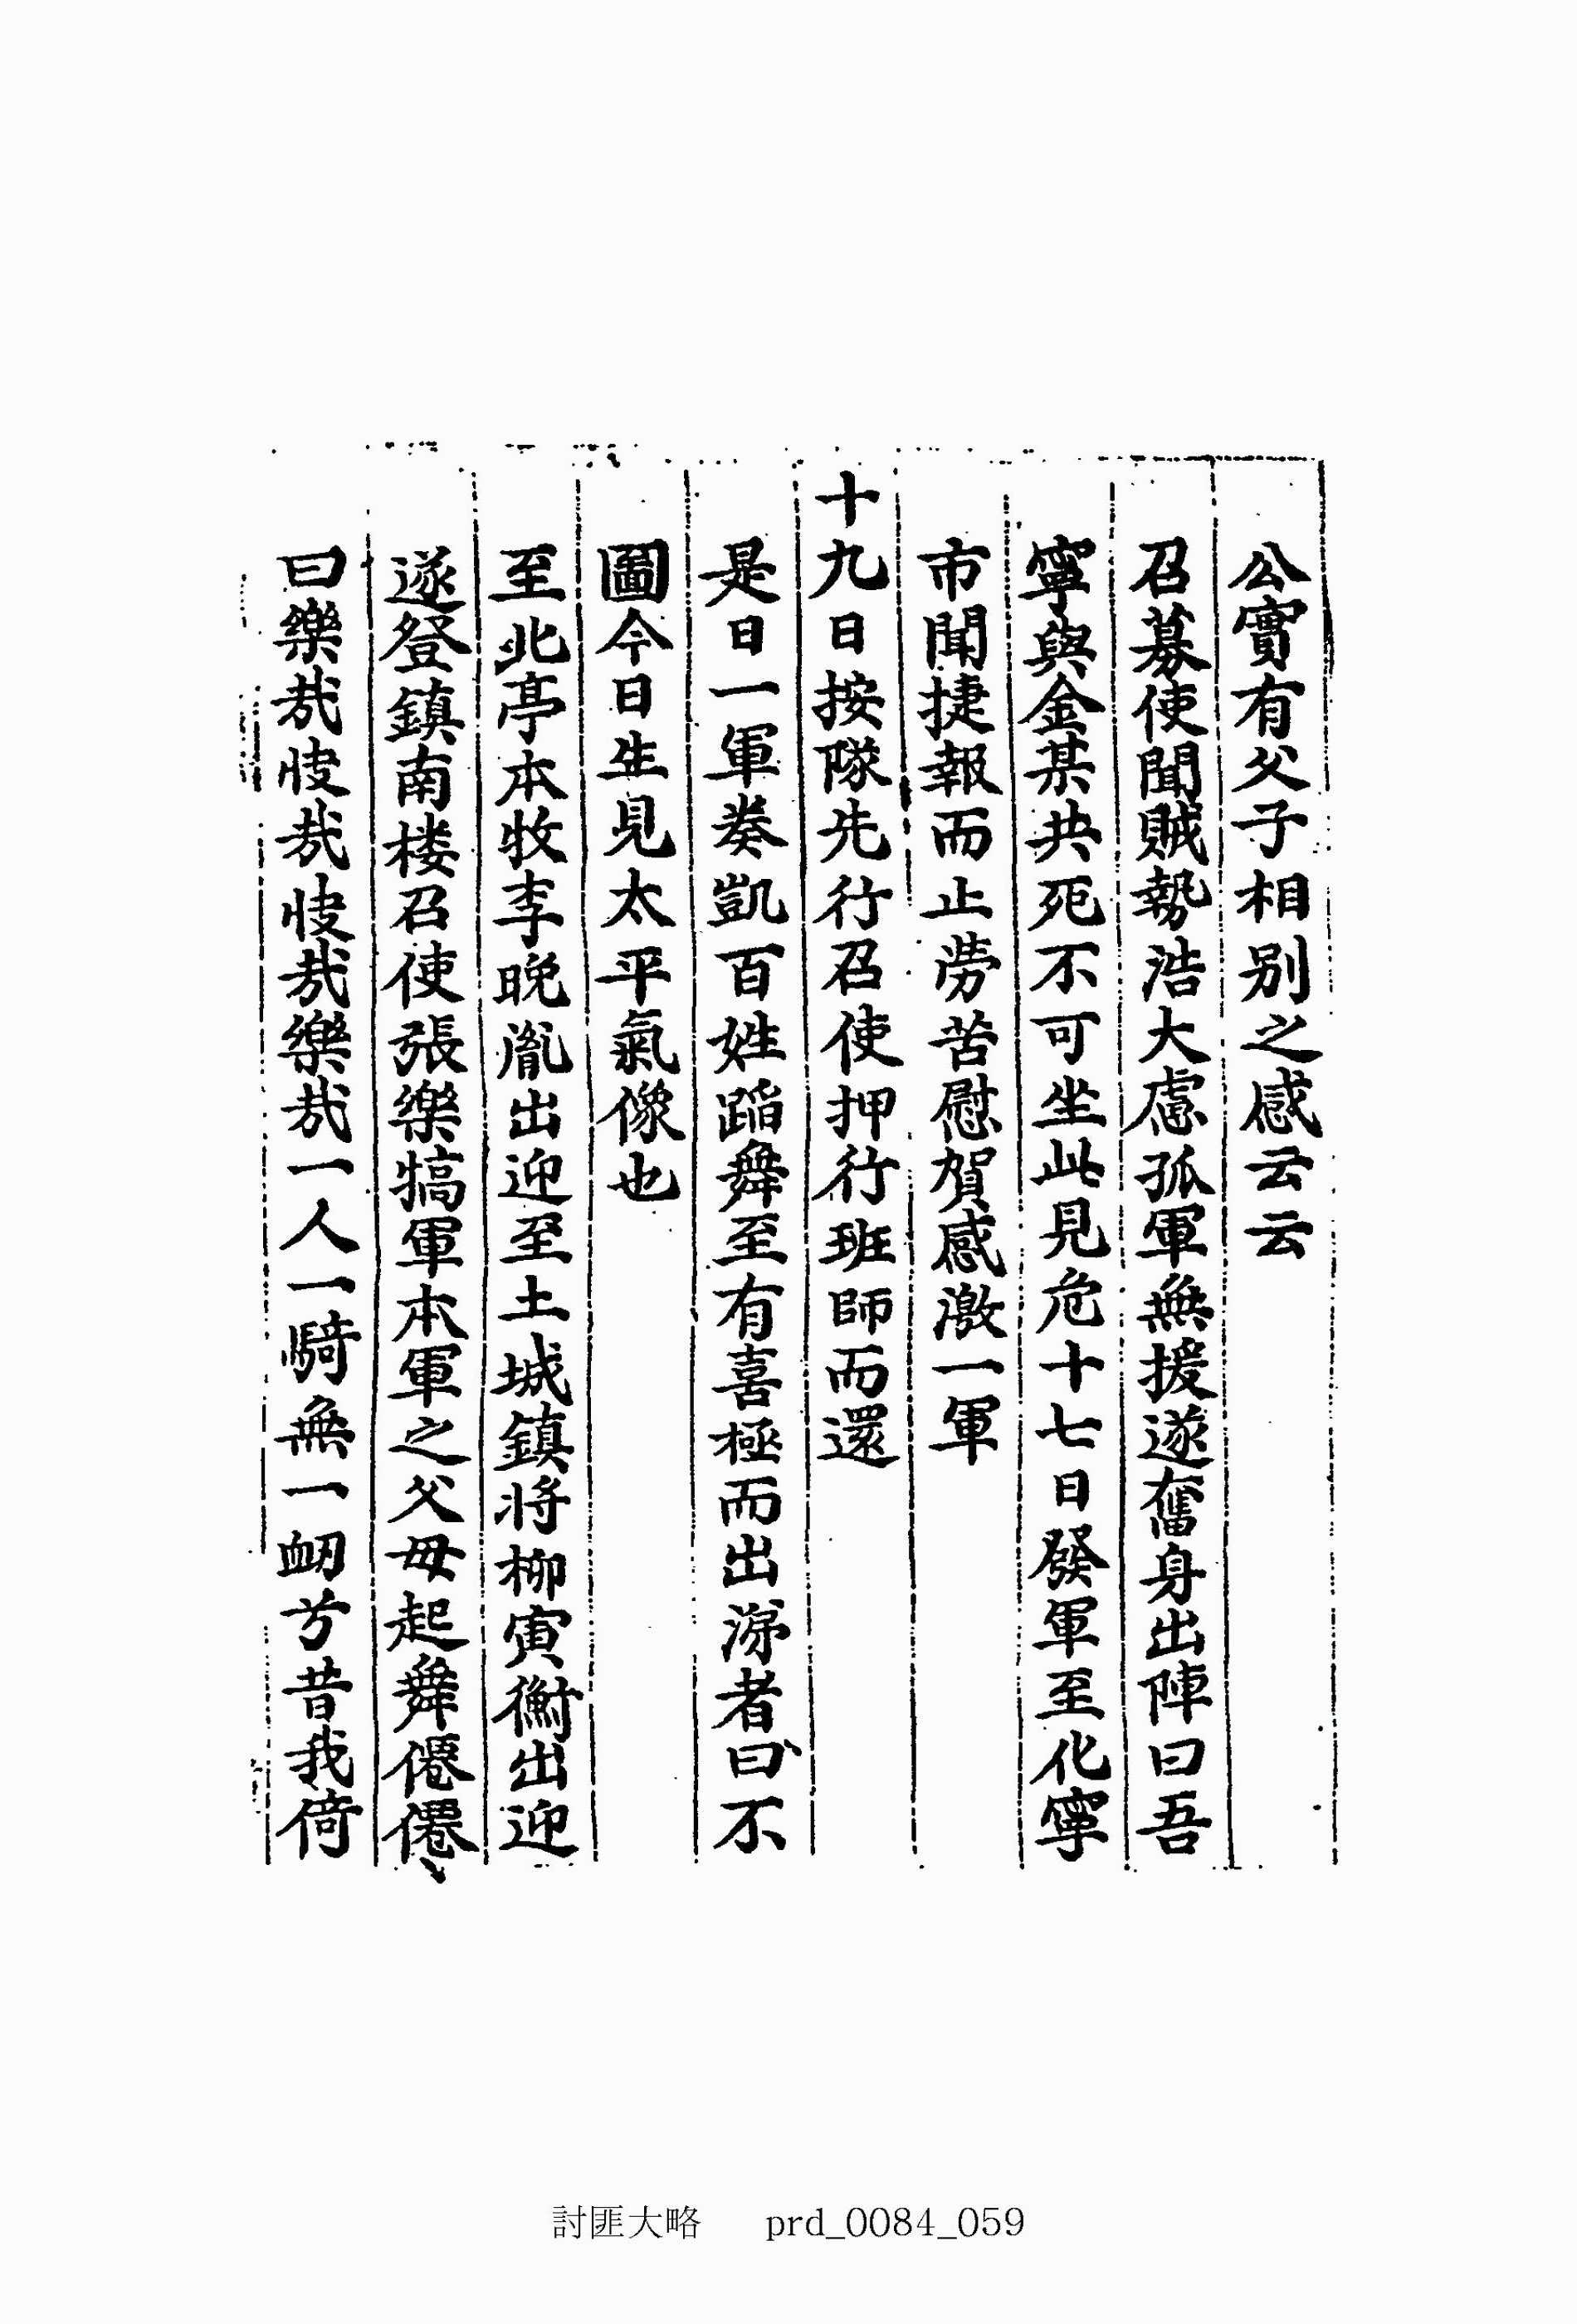 公實有父子相別之感云云
召募使聞賊勢浩大慮孤軍無援遂奮身出陣曰吾
寧與金某共死不可坐此見危十七日發軍至化寧
市聞捷報而止勞苦慰賀感激一軍
十九日按隊先行召使押行班師而還
是日一軍奏凱百姓蹈舞至有喜極而出涕者曰不
圖今日生見太平氣像也
至北亭本牧李晩胤出迎至土城鎮將柳寅衡出迎
遂登鎮南楼召使張樂犒軍本軍之父母起舞僊僊
曰樂哉快哉快哉樂哉一人一騎無一衂方昔我倚
討匪大略 prd_0084_059